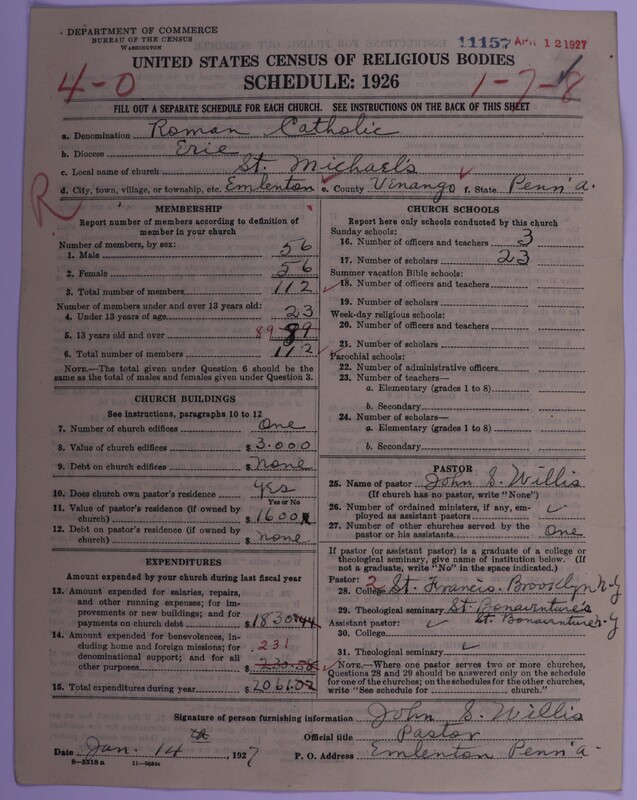 DEPARTMENT OF COMMERCE
BUREAU OF THE CENSUS
WASHINGTON
11157 APR 12 1927
UNITED STATES CENSUS OF RELIGIOUS BODIES
SCHEDULE: 1926
4-0
1-7-8
FILL OUT A SEPARATE SCHEDULE FOR EACH CHURCH. SEE INSTRUCTIONS ON THE BACK OF THIS SHEET
a. Denomination Roman Catholic
b. Diocese Erie
c. Local name of church St. Michael's
d. City, town, village, or township, etc. Emlenton e. County Vinango f. State Penn'a.
R
MEMBERSHIP
Report number of members according to definition of member in your church
Number of members, by sex:
1. Male 56
2. Female 56
3. Total number of members 112
Number of members under and over 13 years old:
4. Under 13 years of age 23
5. 13 years old and over 89 89
6. Total number of members 112
NOTE.—The total given under Question 6 should be the same as the total of males and females given under Question 3.
CHURCH BUILDINGS
See instructions, paragraphs 10 to 12
7. Number of church edifices One
8. Value of church edifices $ 3.000
9. Debt on church edifices $ None
10. Does church own pastor's residence Yes
Yes or No
11. Value of pastor's residence (if owned by church) $ 1600
12. Debt on pastor's residence (if owned by church) $ none
EXPENDITURES
Amount expended by your church during last fiscal year
13. Amount expended for salaries, repairs, and other running expenses; for improvements or new buildings; and for payments on church debt $ 1830.44
14. Amount expended for benevolences, including home and foreign missions; for denominational support; and for all other purposes 231 $ 230.58
15. Total expenditures during year $ 2061.02
CHURCH SCHOOLS
Report here only schools conducted by this church
Sunday schools:
16. Number of officers and teachers 3
17. Number of scholars 23
Summer vacation Bible schools:
18. Number of officers and teachers
19. Number of scholars
Week-day religious schools:
20. Number of officers and teachers
21. Number of scholars
Parochial schools:
22. Number of administrative officers
23. Number of teachers—
a. Elementary (grades 1 to 8)
b. Secondary
24. Number of scholars—
a. Elementary (grades 1 to 8)
b. Secondary
PASTOR
25. Name of pastor John S. Willis
(If church has no pastor, write "None")
26. Number of ordained ministers, if any, employed as assistant pastors
27. Number of other churches served by the pastor or his assistants One
If pastor (or assistant pastor) is a graduate of a college or theological seminary, give name of institution below. (If not a graduate, write "No" in the space indicated.)
Pastor: 2
28. College St. Francis. Brooselyn N-Y
29. Theological seminary St. Bonaventure's
Assistant pastor: St. Bonaventure N-Y
30. College
31. Theological seminary
NOTE.—Where one pastor serves two or more churches, Questions 28 and 29 should be answered only on the schedule for one of the churches; on the schedules for the other churches, write "See schedule for ........ church."
Signature of person furnishing information John S. Willis
Official title Pastor
Date Jan. 14 th, 1927 P. O. Address Emlenton Penn'a-
8—5318 a 11—9664a